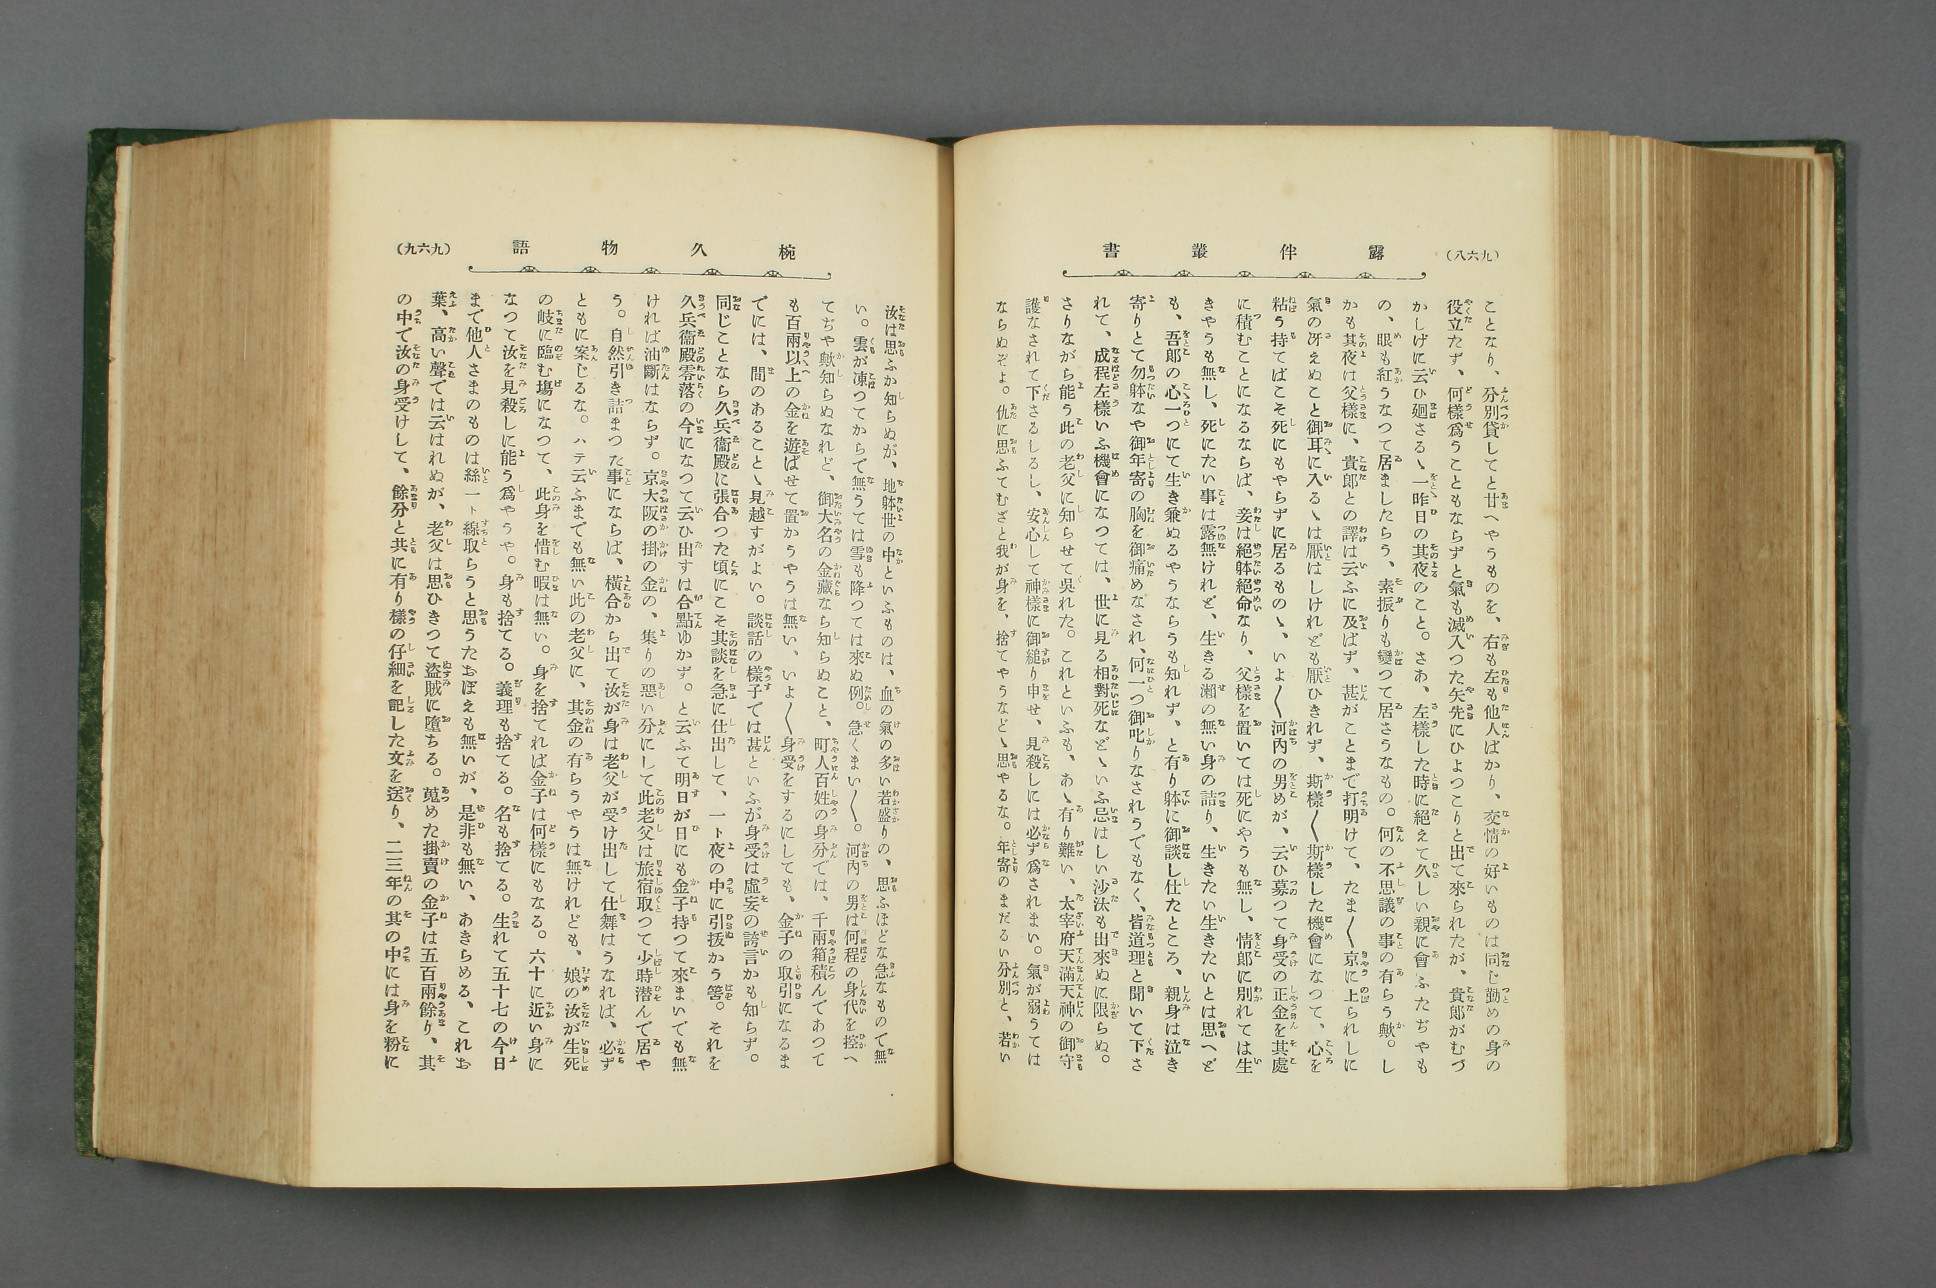 （九六八）
露伴叢書
ことなり、分別貸してと廿へやうものを、右も左も他人ばかり、交情の好いものは同じ勤めの身の
役立たず、何樣爲うこともならずと氣も滅入つた矢先にひよつこりと出て來られたが、貴郎がむづ
かしげに云ひ廻さるゝ一昨日の其夜のこと。さあ、左樣した時に絕えて久しい親に會ふたぢやも
の、眼も紅うなつて居ましたらう、素振りも變つて居さうなもの。何の不思議の事の有らう歟。し
かも其夜は父樣に、貴郎との譯は云ふに及ばず、甚がことまで打明けて、たま〳〵京に上られしに
氣の冴えぬこと御耳に入るゝは厭はしけれども厭ひきれず、斯樣〳〵斯樣した機會になつて、心を
粘う持てばこそ死にもやらずに居るものゝ、いよ〳〵河內の男めが、云ひ募つて身受の正金を其處
に積むことになるならば、妾は絕躰絕命なり、父樣を置いては死にやうも無し、情郎に別れては生
きやうも無し、死にたい事は露無けれど、生きる瀨の無い身の詰り、生きたい生きたいとは思へど
も、吾郎の心一つにて生き兼ぬるやうならうも知れず、と有り躰に御談し仕たところ、親身は泣き
寄りとて勿躰なや御年寄の胸を御痛めなされ、何一つ御叱りなされうでもなく、皆道理と聞いて下さ
れて、成程左樣いふ機會になつては、世に見る相對死などゝいふ忌はしい沙汰も出來ぬに限らぬ。
さりながら能う此の老父に知らせて吳れた。これといふも、あゝ有り難い、太宰府天滿天神の御守
護なされて下さるしるし、安心して神樣に御縋り申せ、見殺しには必ず爲されまい。氣が弱うては
ならぬぞよ。仇に思ふてむざと我が身を、捨てやうなどゝ思やるな。年寄のまだるい分別と、若い
椀久物語
（九六九）
汝は思ふか知らぬが、地躰世の中といふものは、血の氣の多い若盛りの、思ふほどな急なもので無
い。雲が凍つてからで無うては雪も降つては來ぬ例。急くまい〳〵。河內の男は何程の身代を控へ
てぢや歟知らぬなれど、御大名の金藏なら知らぬこと、町人百姓の身分では、千兩箱積んであつて
も百兩以上の金を遊ばせて置かうやうは無い、いよ〳〵身受をするにしても、金子の取引になるま
でには、間のあることゝ見越すがよい。談話の樣子では甚といふが身受は虛妄の誇言かも知らず。
同じことなら久兵衞殿に張合つた頃にこそ其談を急に仕出して、一ト夜の中に引拔かう筈。それを
久兵衞殿零落の今になつて云ひ出すは合點ゆかず。と云ふて明日が日にも金子持つて來まいでも無
ければ油斷はならず。京大阪の掛の金の、集りの惡い分にして此老父は旅宿取つて少時潛んで居や
う。自然引き詰まつた事にならば、橫合から出て汝が身は老父が受け出して仕舞はうなれば、必ず
ともに案じるな。ハテ云ふまでも無い此の老父に、其金の有らうやうは無けれども、娘の汝が生死
の岐に臨む塲になつて、此身を惜む暇は無い。身を捨てれば金子は何樣にもなる。六十に近い身に
なつて汝を見殺しに能う爲やうや。身も捨てる。義理も捨てる。名も捨てる。生れて五十七の今日
まで他人さまのものは絲一ト線取らうと思うたおぼえも無いが、是非も無い、あきらめる、これお
葉、高い聲では云はれぬが、老父は思ひきつて盜賊に墮ちる。蒐めた掛賣の金子は五百兩餘り、其
の中で汝の身受けして、餘分と共に有り樣の仔細を記した文を送り、二三年の其の中には身を粉に